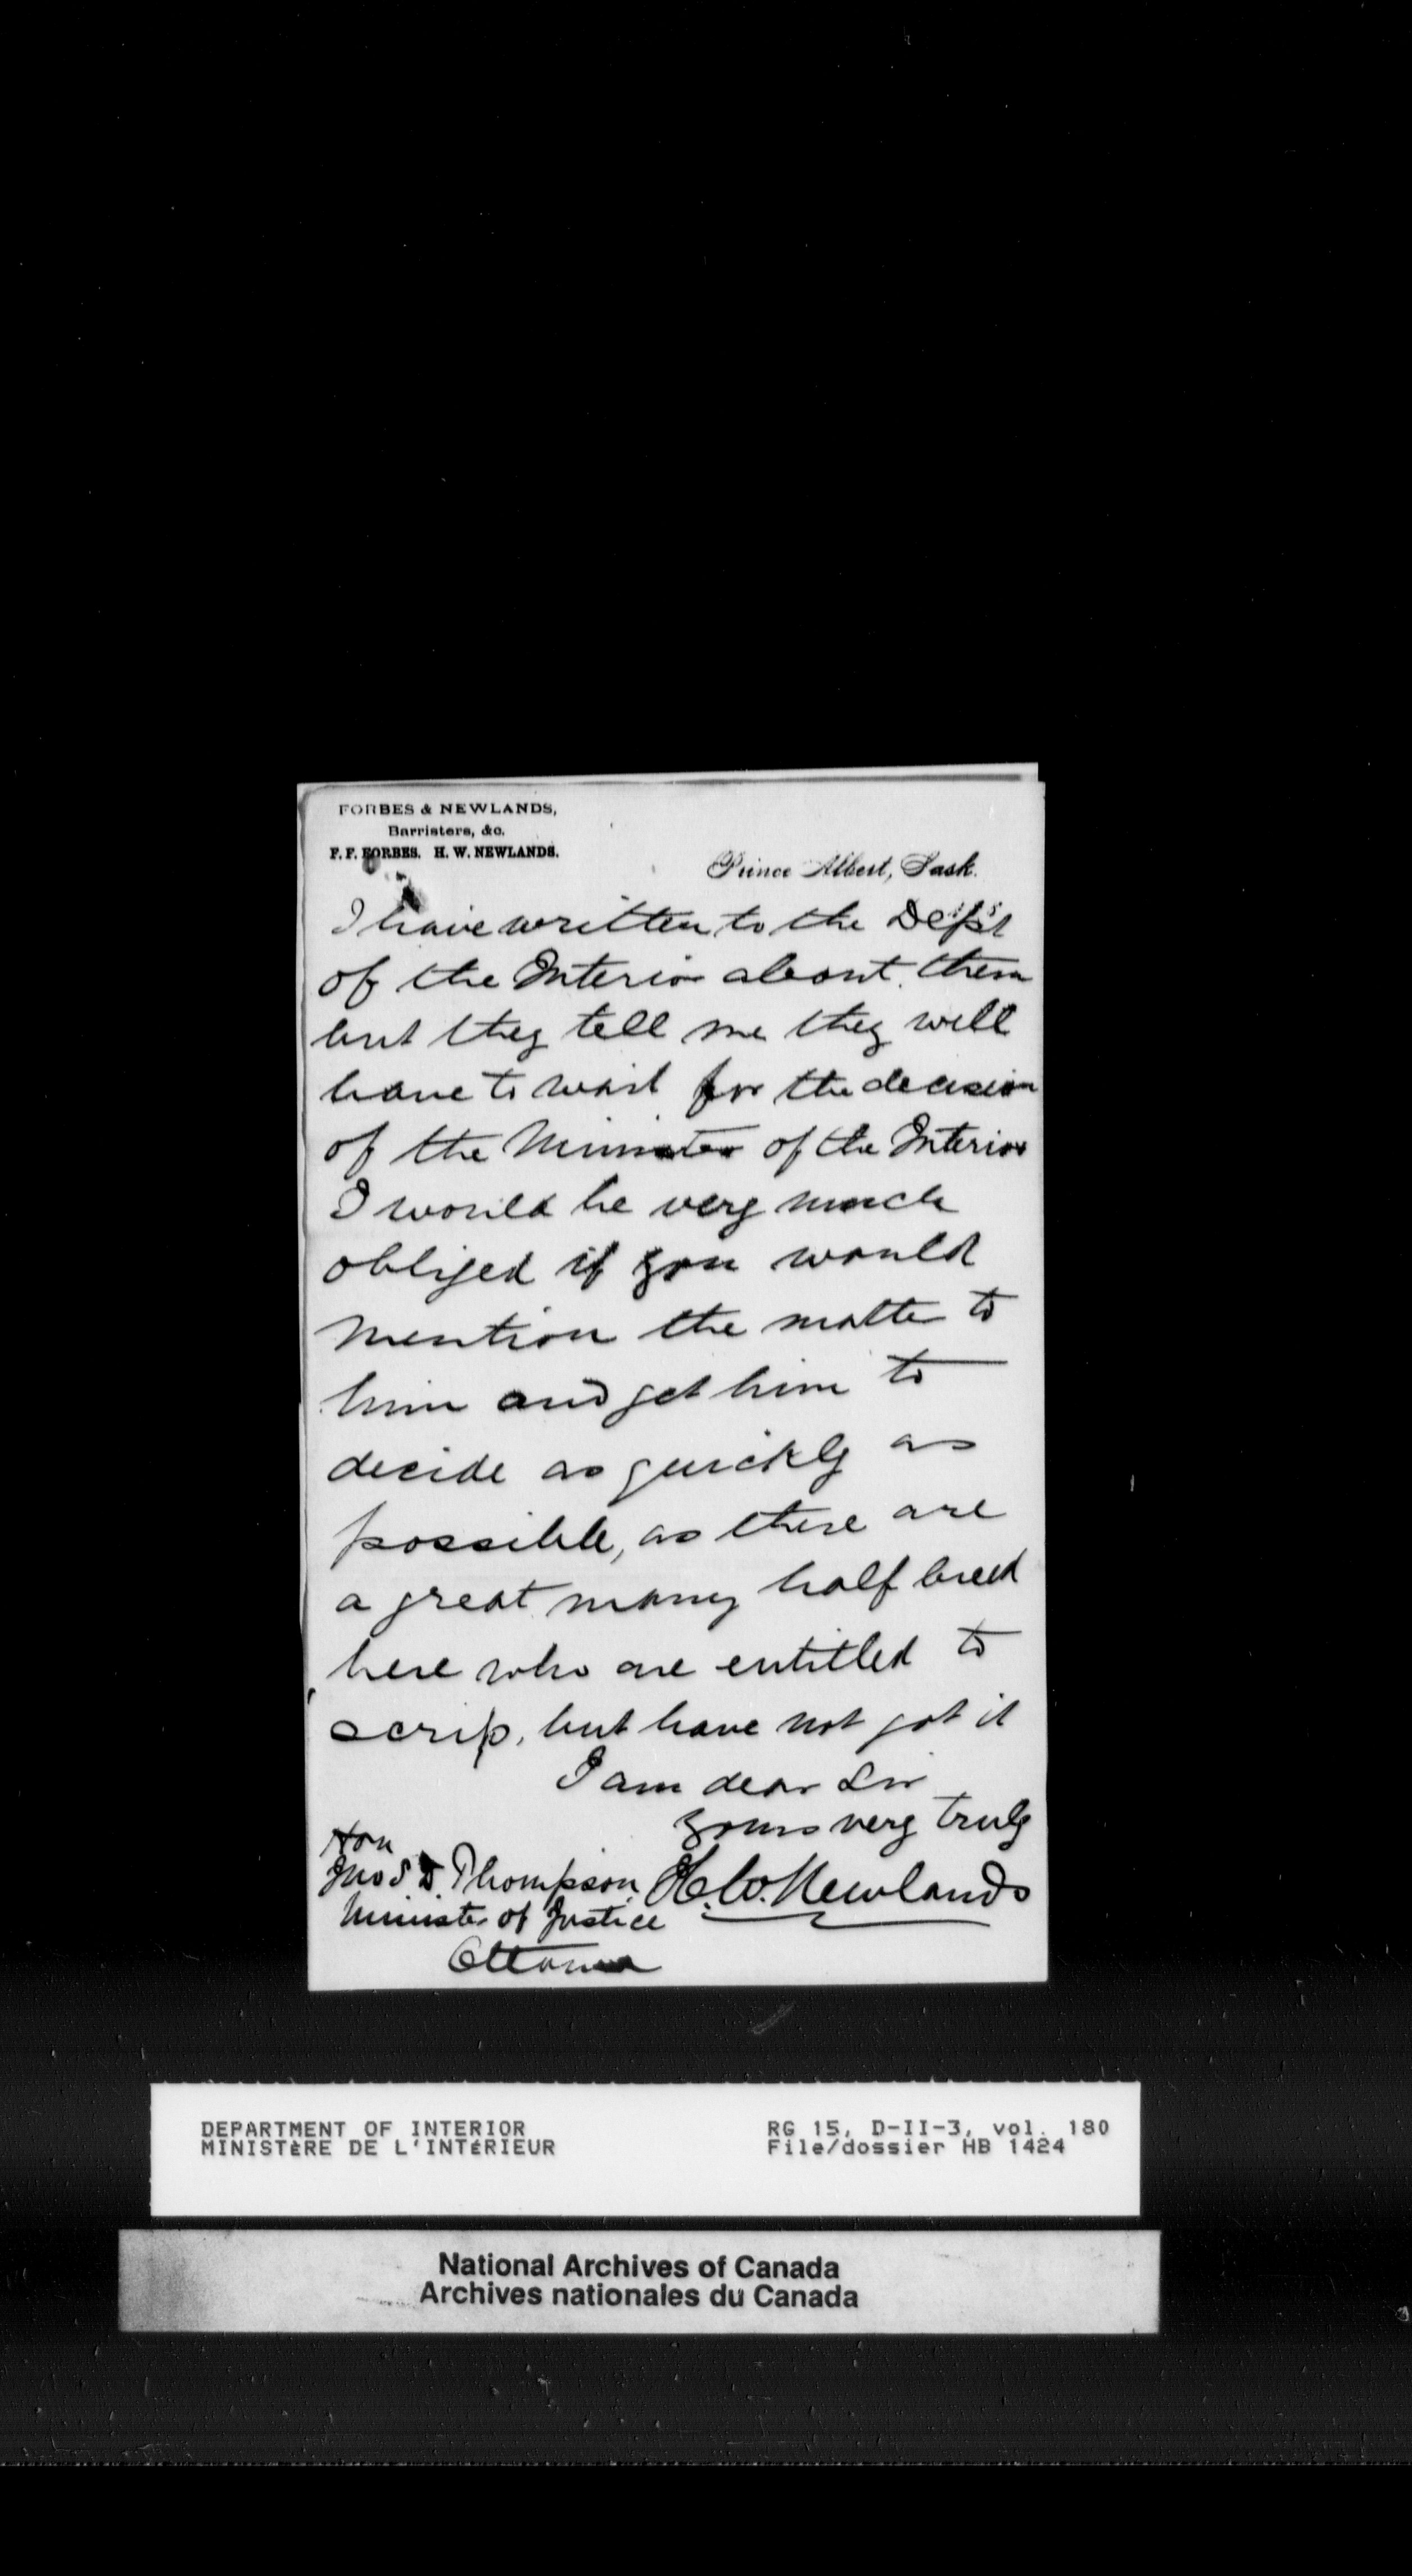 FORBES & NEWLANDS,
Barristers, &c.
F. F. FORBES. H. W. NEWLANDS.
Prince Albert, Sask.
I have written to the Dep't
of the Interior about them
but they tell me they will
have to wait for the decision
of the Minister of the Interior
I would be very much
obliged if you would
mention the matter to
him and get him to
decide as quickly as
possible, as there are
a great many half breed
here who are entitled to
scrip, but have not got it
I am dear Sir
yours very truly
Hon
Jno S D. Thompson H. W. Newlands
Minister of Justice
Ottawa
DEPARTMENT OF INTERIOR RG 15, D-II-3, vol. 180
MINISTÈRE DE L'INTÉRIEUR File/dossier HB 1424
National Archives of Canada
Archives nationales du Canada